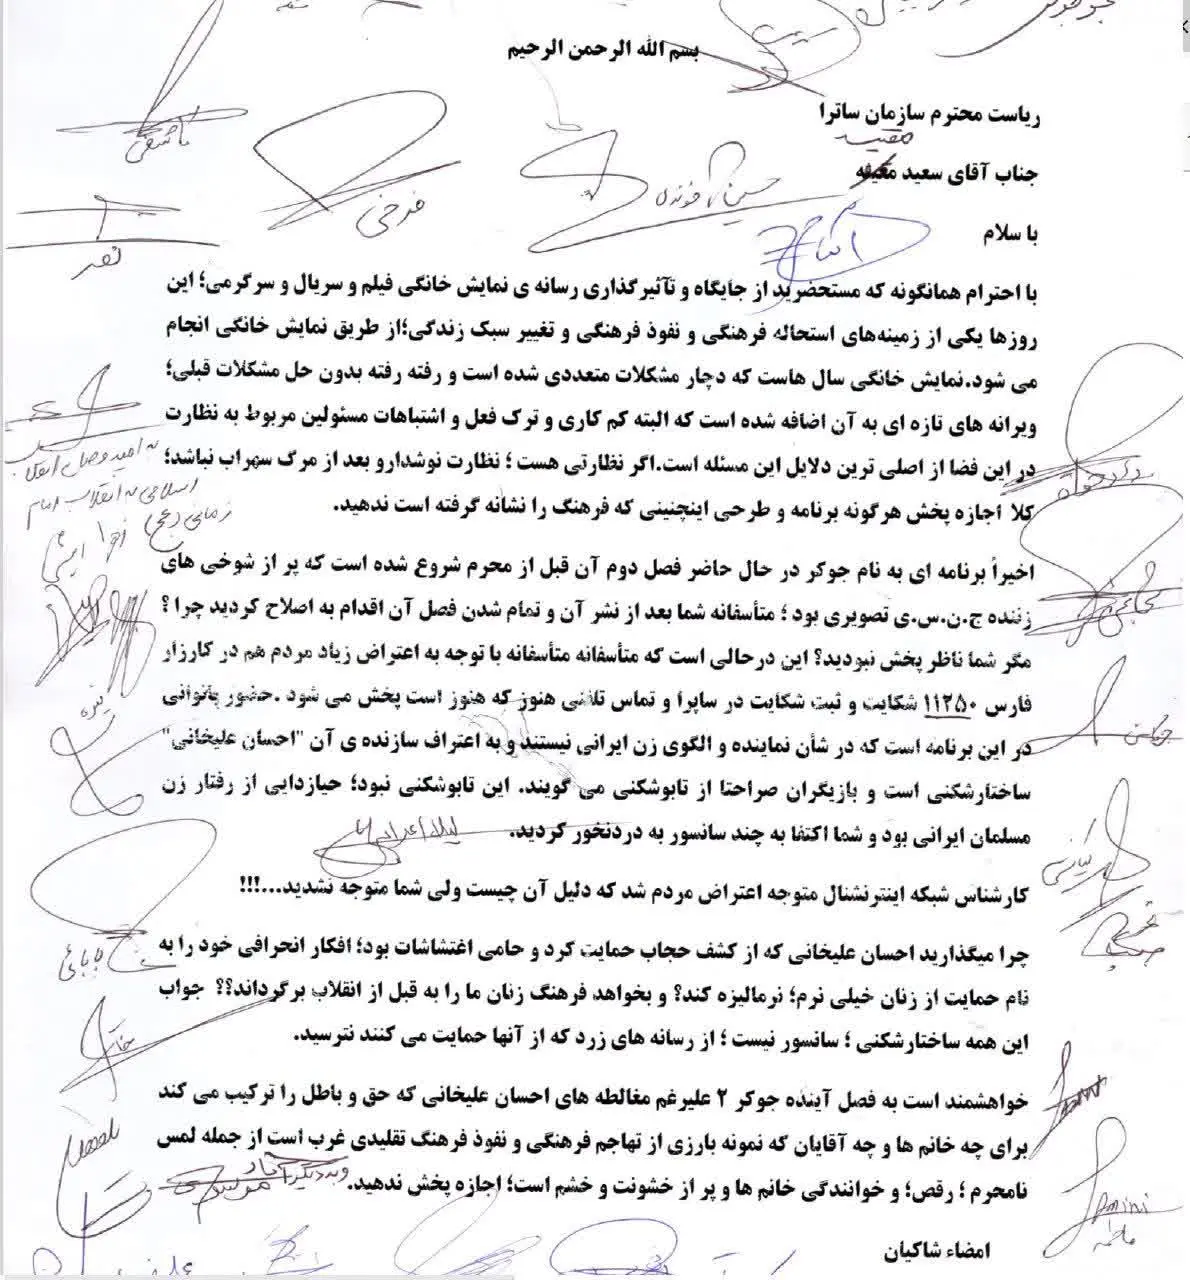 بسم الله الرحمن الرحیم
ریاست محترم سازمان ساترا
جناب آقای سعید مقیسه
با سلام
با احترام همانگونه که مستحضرید از جایگاه و تآثیرگذاری رسانه ی نمایش خانگی فیلم و سریال و سرگرمی؛ این
روزها یکی از زمینه‌های استحاله فرهنگی و نفوذ فرهنگی و تغییر سبک زندگی؛از طریق نمایش خانگی انجام
می شود.نمایش خانگی سال هاست که دچار مشکلات متعددی شده است و رفته رفته بدون حل مشکلات قبلی؛
ویرانه های تازه ای به آن اضافه شده است که البته کم کاری و ترک فعل و اشتباهات مسئولین مربوط به نظارت
در این فضا از اصلی ترین دلایل این مسئله است.اگر نظارتی هست ؛ نظارت نوشدارو بعد از مرگ سهراب نباشد؛
کلا اجازه پخش هرگونه برنامه و طرحی اینچنینی که فرهنگ را نشانه گرفته است ندهید.
اخیراً برنامه ای به نام جوکر در حال حاضر فصل دوم آن قبل از محرم شروع شده است که پر از شوخی های
زننده ج.ن.س.ی تصویری بود ؛ متأسفانه شما بعد از نشر آن و تمام شدن فصل آن اقدام به اصلاح کردید چرا ؟
مگر شما ناظر پخش نبودید؟ این درحالی است که متأسفانه متأسفانه با توجه به اعتراض زیاد مردم هم در کارزار
فارس ۱۱۲۵۰ شکایت و ثبت شکایت در ساپرا و تماس تلفنی هنوز که هنوز است پخش می شود .حضور بانوانی
در این برنامه است که در شأن نماینده و الگوی زن ایرانی نیستند و به اعتراف سازنده ی آن "احسان علیخانی"
ساختارشکنی است و بازیگران صراحتا از تابوشکنی می گویند. این تابوشکنی نبود؛ حیازدایی از رفتار زن
مسلمان ایرانی بود و شما اکتفا به چند سانسور به دردنخور کردید.
کارشناس شبکه اینترنشنال متوجه اعتراض مردم شد که دلیل آن چیست ولی شما متوجه نشدید...!!!
چرا میگذارید احسان علیخانی که از کشف حجاب حمایت کرد و حامی اغتشاشات بود؛ افکار انحرافی خود را به
نام حمایت از زنان خیلی نرم؛ نرمالیزه کند؟ و بخواهد فرهنگ زنان ما را به قبل از انقلاب برگرداند؟؟ جواب
این همه ساختارشکنی ؛ سانسور نیست ؛ از رسانه های زرد که از آنها حمایت می کنند نترسید.
خواهشمند است به فصل آینده جوکر ۲ علیرغم مغالطه های احسان علیخانی که حق و باطل را ترکیب می کند
برای چه خانم ها و چه آقایان که نمونه بارزی از تهاجم فرهنگی و نفوذ فرهنگ تقلیدی غرب است از جمله لمس
نامحرم ؛ رقص؛ و خوانندگی خانم ها و پر از خشونت و خشم است؛ اجازه پخش ندهید.
امضاء شاکیان
فرخی
بابائی
دادخواه
Amini
فاطمه